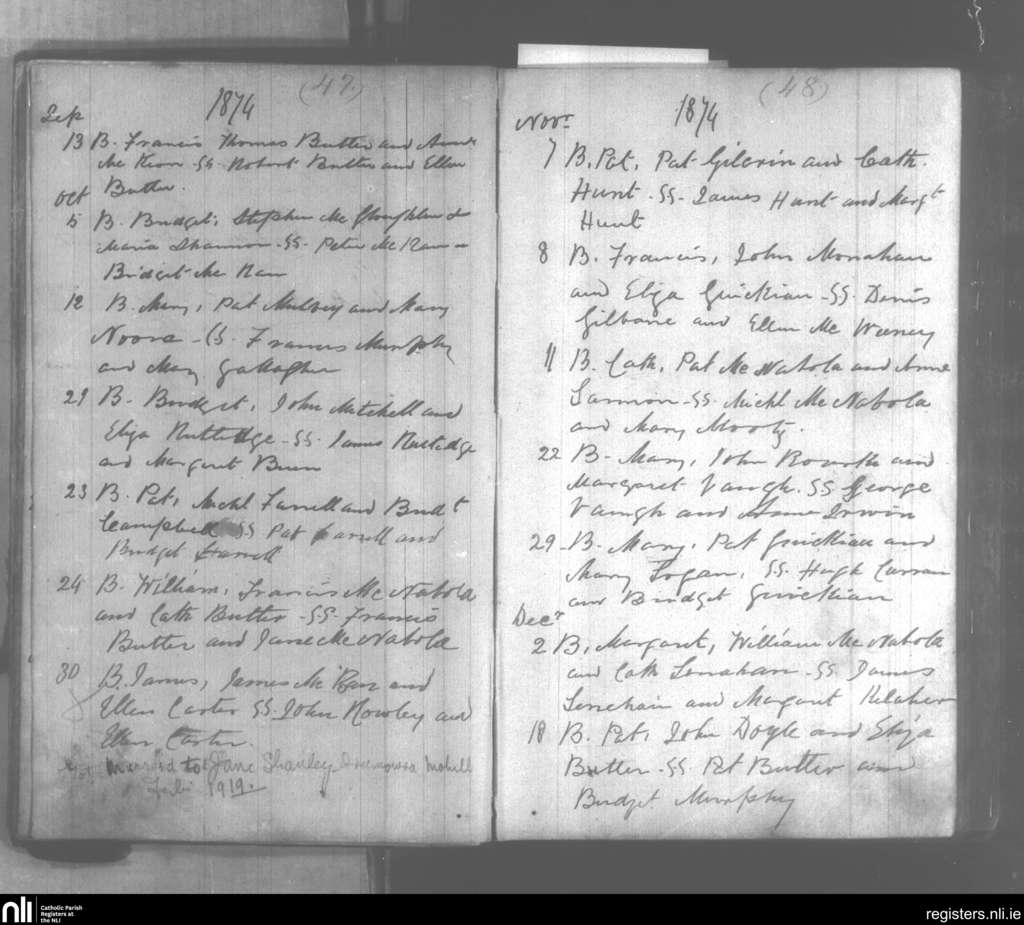 (47)
1874
Sep
13 B. Francis Thomas Butler and Anne
Mc Keon - SS - Robert Butler and Ellen
Butler.
Oct
5 B. Bridget, Stephen Mc Loughlin &
Maria Shannon - SS - Peter Mc Ran -
Bridget Mc Ran
12 B. Mary, Pat Mulvey and Mary
Noora - SS. Francis Murphy
and Mary Gallagher
21 B. Bridget, John Mitchell and
Eliza Rutledge - SS. James Rutledge
and Margaret Brien
23 B. Pat, Michl Farrell and Bridt
Campbell SS Pat Farrell and
Bridget Farrell
24 B. William, Francis Mc Nabola
and Cath Butler - SS. Francis
Butler and Jane Mc Nabola
30 B. James, James Mc Ran and
Ellen Carter SS. John Rowley and
Ellen Carter.
married to Jane Shanley Mohill
1919.
(48)
1874
Novr
7 B. Pat, Pat Gilerin and Cath.
Hunt - SS - James Hunt and Margt
Hunt
8 B. Francis, John Monahan
and Eliza Guickian - SS. Denis
Gilbane and Ellen Mc Weeney
11 B. Cath, Pat Mc Nabola and Anne
Lannon - SS. Michl Mc Nabola
and Mary Mooty.
22 B - Mary, John Rourke and
Margaret Vaugh. SS George
Vaugh and Anne Irwin
29 - B. Mary, Pat Guickian and
Mary Fogan, SS. Hugh Curran
and Bridget Guickian
Decr
2 B. Margaret, William Mc Nabola
and Cath Lenahan - SS James
Lenehain and Margaret Kelaher
18 B. Pat, John Doyle and Eliza
Butler - SS. Pat Butler and
Bridget Murphy
nli Catholic Parish
Registers at
the NLI
registers.nli.ie